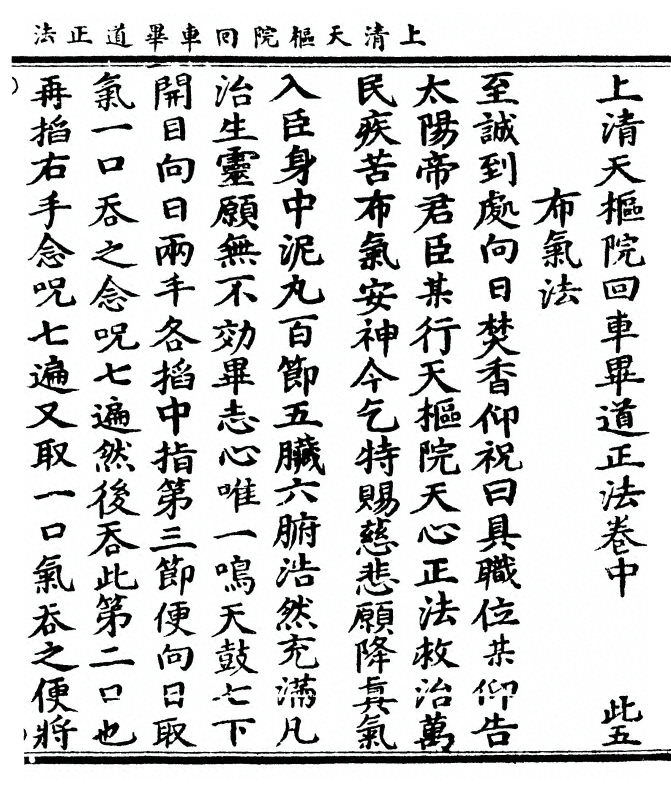 上清天樞院回車畢道正法
上清天樞院回車畢道正法卷中 此五
布氣法
至誠到處向日焚香仰祝曰具職位某仰告
太陽帝君臣某行天樞院天心正法救治萬
民疾苦布氣安神今乞特賜慈悲願降眞氣
入臣身中泥丸百節五臟六腑浩然充滿凡
治生靈願無不効畢志心唯一鳴天鼓七下
開目向日兩手各掐中指第三節便向日取
氣一口吞之念呪七遍然後吞此第二口也
再掐右手念呪七遍又取一口氣吞之便將